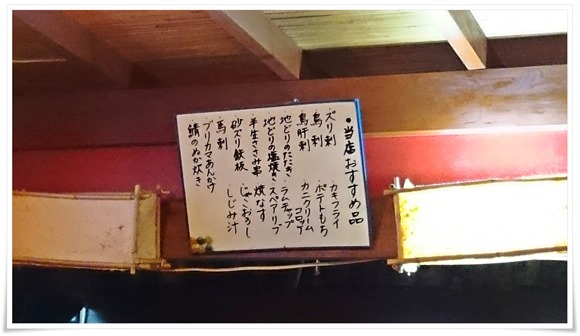 ・当店おすすめ品
・ズリ刺
・鳥刺
・鳥肝刺
・地どりのたたき
・地どりの塩焼き
・半生ささみ串
・砂ズリ鉄板
・馬刺
・ブリカマあんかけ
・鯖のぬか炊き
・カキフライ
・ポテトもち
・カニクリームコロッケ
・ラムチャップ
・スペアリブ
・焼なす
・じゃこおろし
・しじみ汁